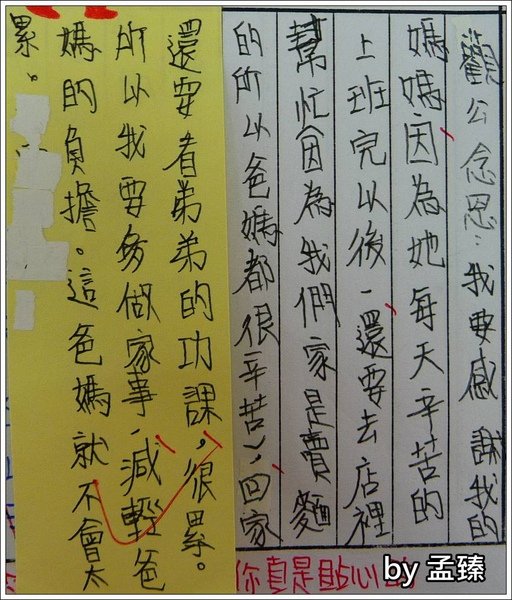 觀公念恩:我要感謝我的
媽媽因為她每天辛苦的
上班完以後,還要去店裡
幫忙因為我們家是賣麵
的所以爸媽都很辛苦,回家
還要看弟弟的功課,很累。
所以我要多做家事,減輕爸
媽的負擔。這爸媽就不會太
累。
你真是貼心
by 孟臻